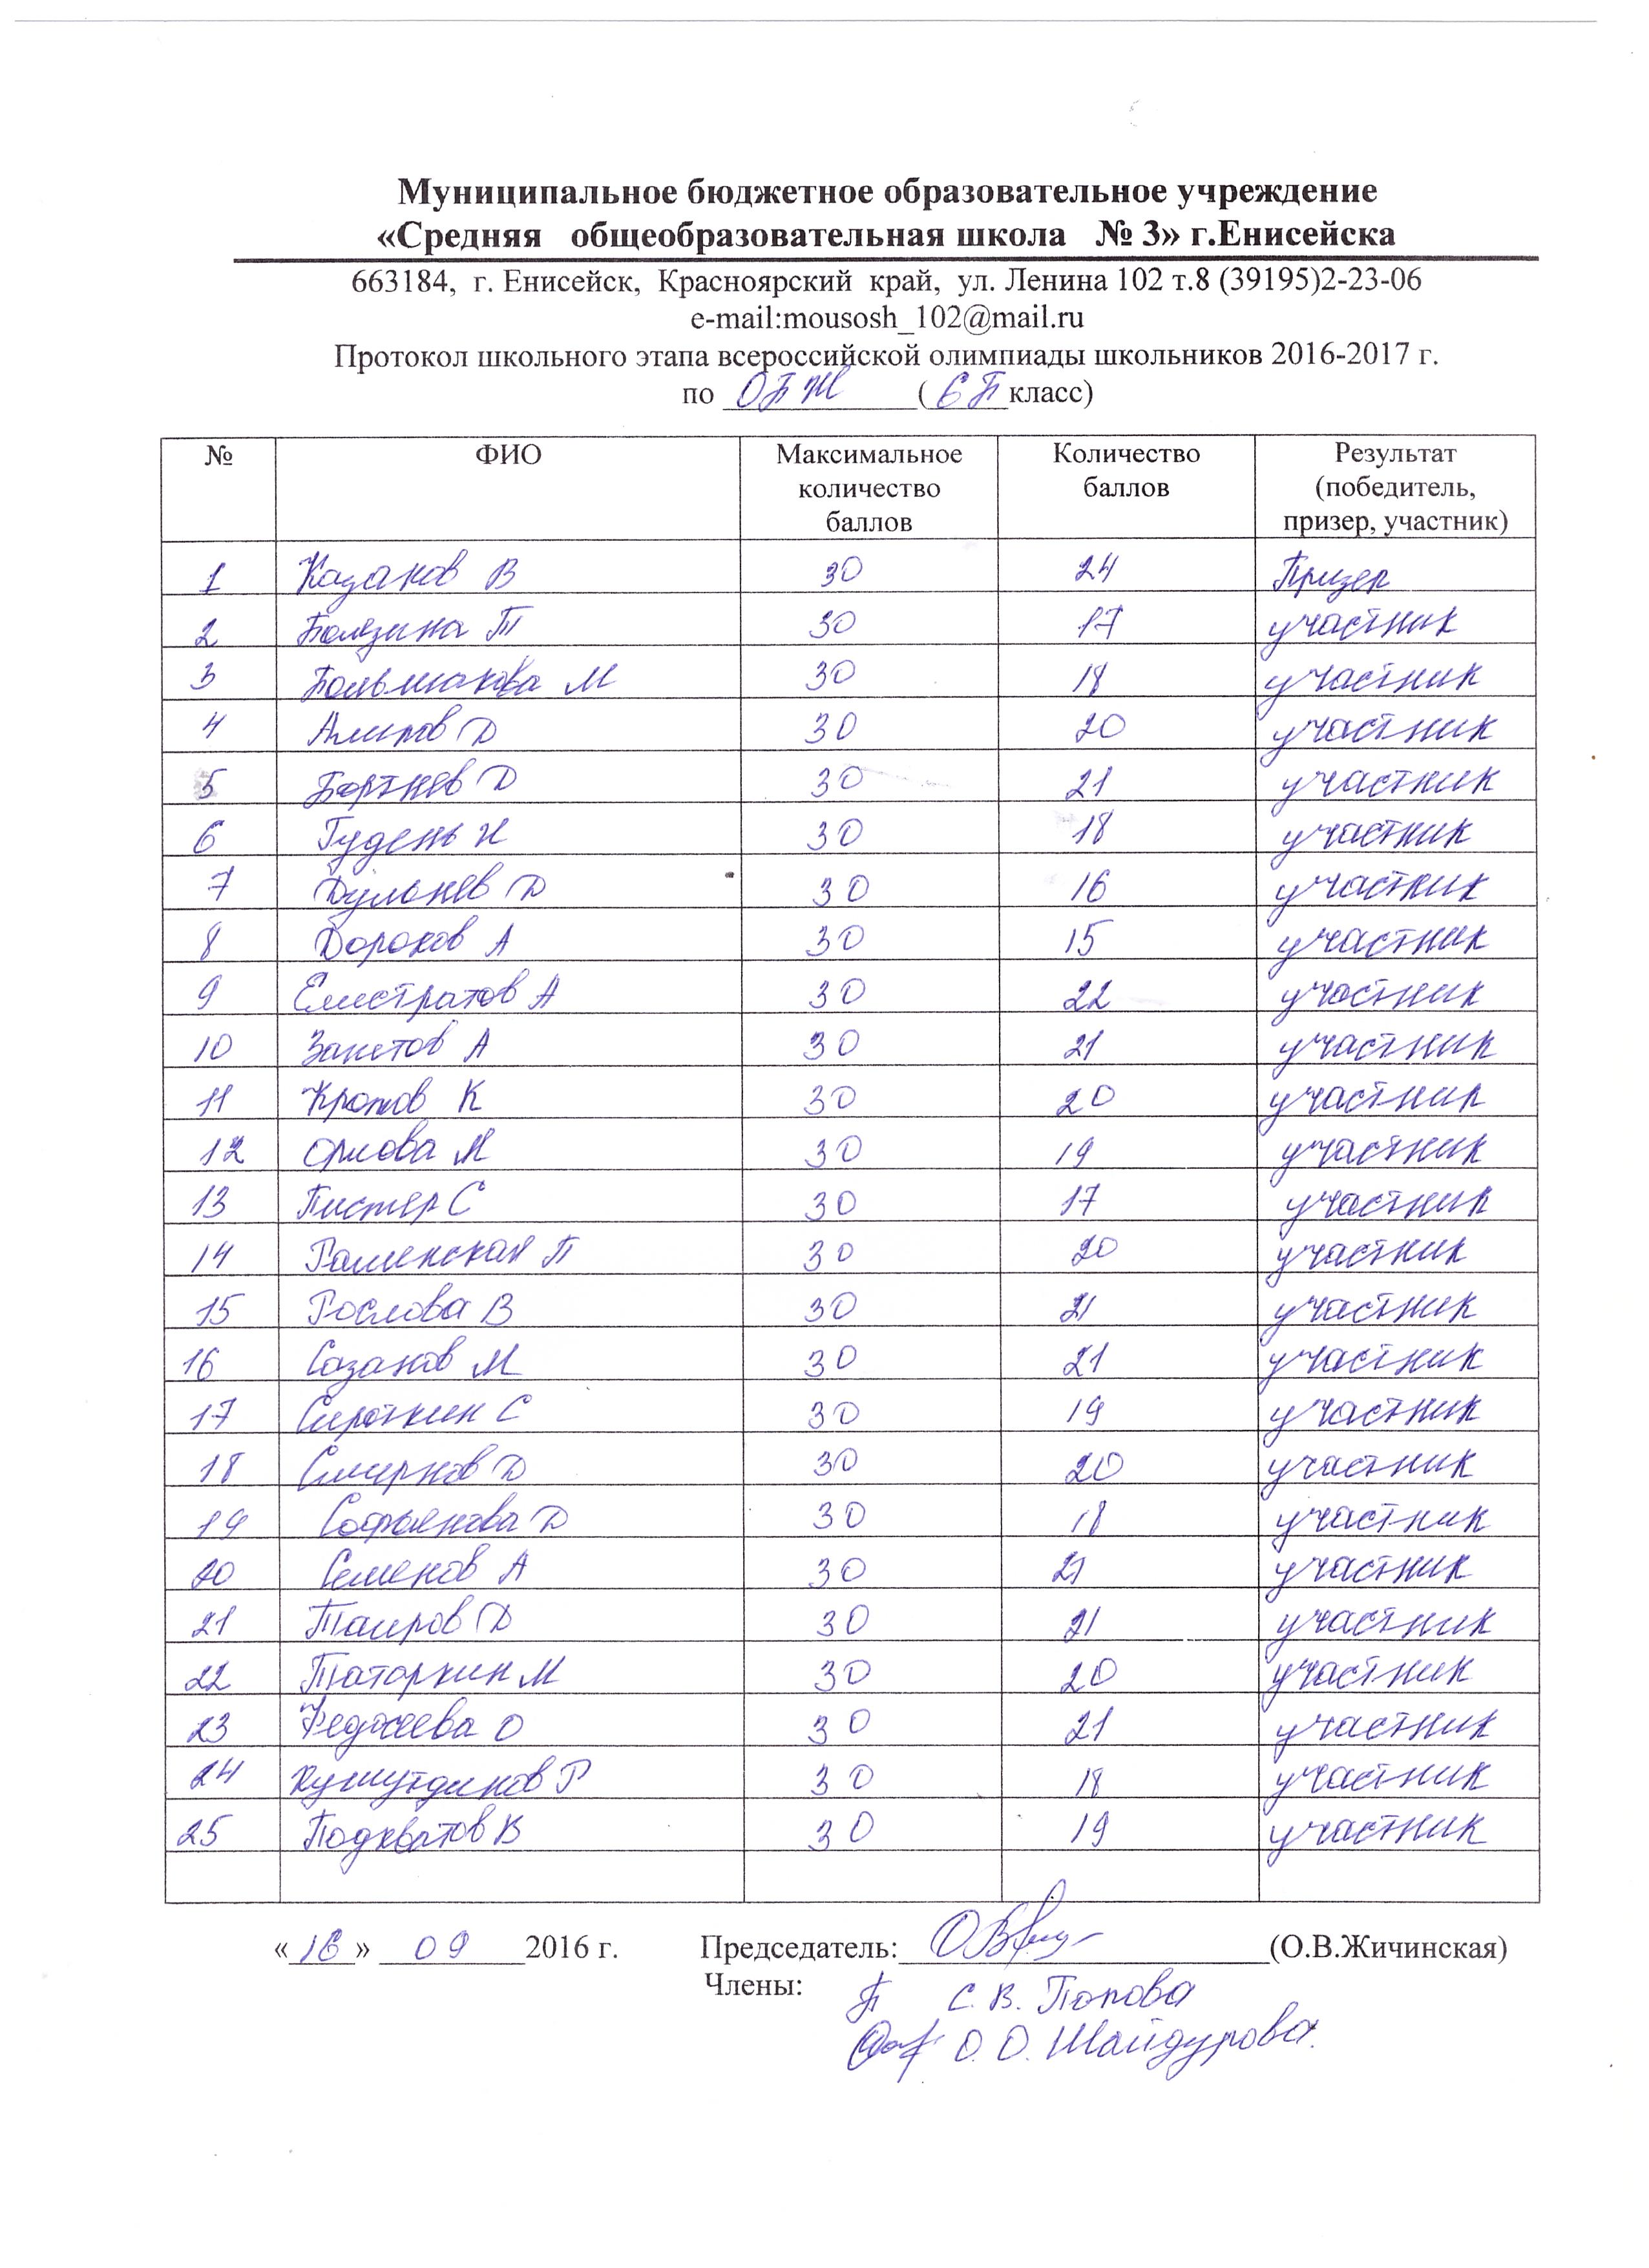 Муниципальное бюджетное образовательное учреждение
«Средняя общеобразовательная школа № 3» г.Енисейска
663184, г. Енисейск, Красноярский край, ул. Ленина 102 т.8 (39195)2-23-06
e-mail:mousosh_102@mail.ru
Протокол школьного этапа всероссийской олимпиады школьников 2016-2017 г.
по ОБЖ (6 Б класс)
№ ФИО Максимальное количество баллов Количество баллов Результат (победитель, призер, участник)
1 Казаков В 30 24 Призер
2 Т 30 17 участник
3 Большакова М 30 18 участник
4 Д 30 20 участник
5 Бортнев Д 30 21 участник
6 Гудень Н 30 18 участник
7 Дульнев Д 30 16 участник
8 А 30 15 участник
9 Елистратов А 30 22 участник
10 А 30 21 участник
11 К 30 20 участник
12 Орлова М 30 19 участник
13 Пистер С 30 17 участник
14 Раменская П 30 20 участник
15 Рослова В 30 21 участник
16 Сазанов М 30 21 участник
17 Сироткин С 30 19 участник
18 Смирнов Д 30 20 участник
19 Софьянова Д 30 18 участник
20 Семенов А 30 21 участник
21 Таиров Д 30 21 участник
22 Таторкин М 30 20 участник
23 Федосеева О 30 21 участник
24 Р 30 18 участник
25 Подхватов В 30 19 участник
«16» 09 2016 г. Председатель: (О.В.Жичинская)
Члены: С. В. Попова
О. О. Шайдурова.